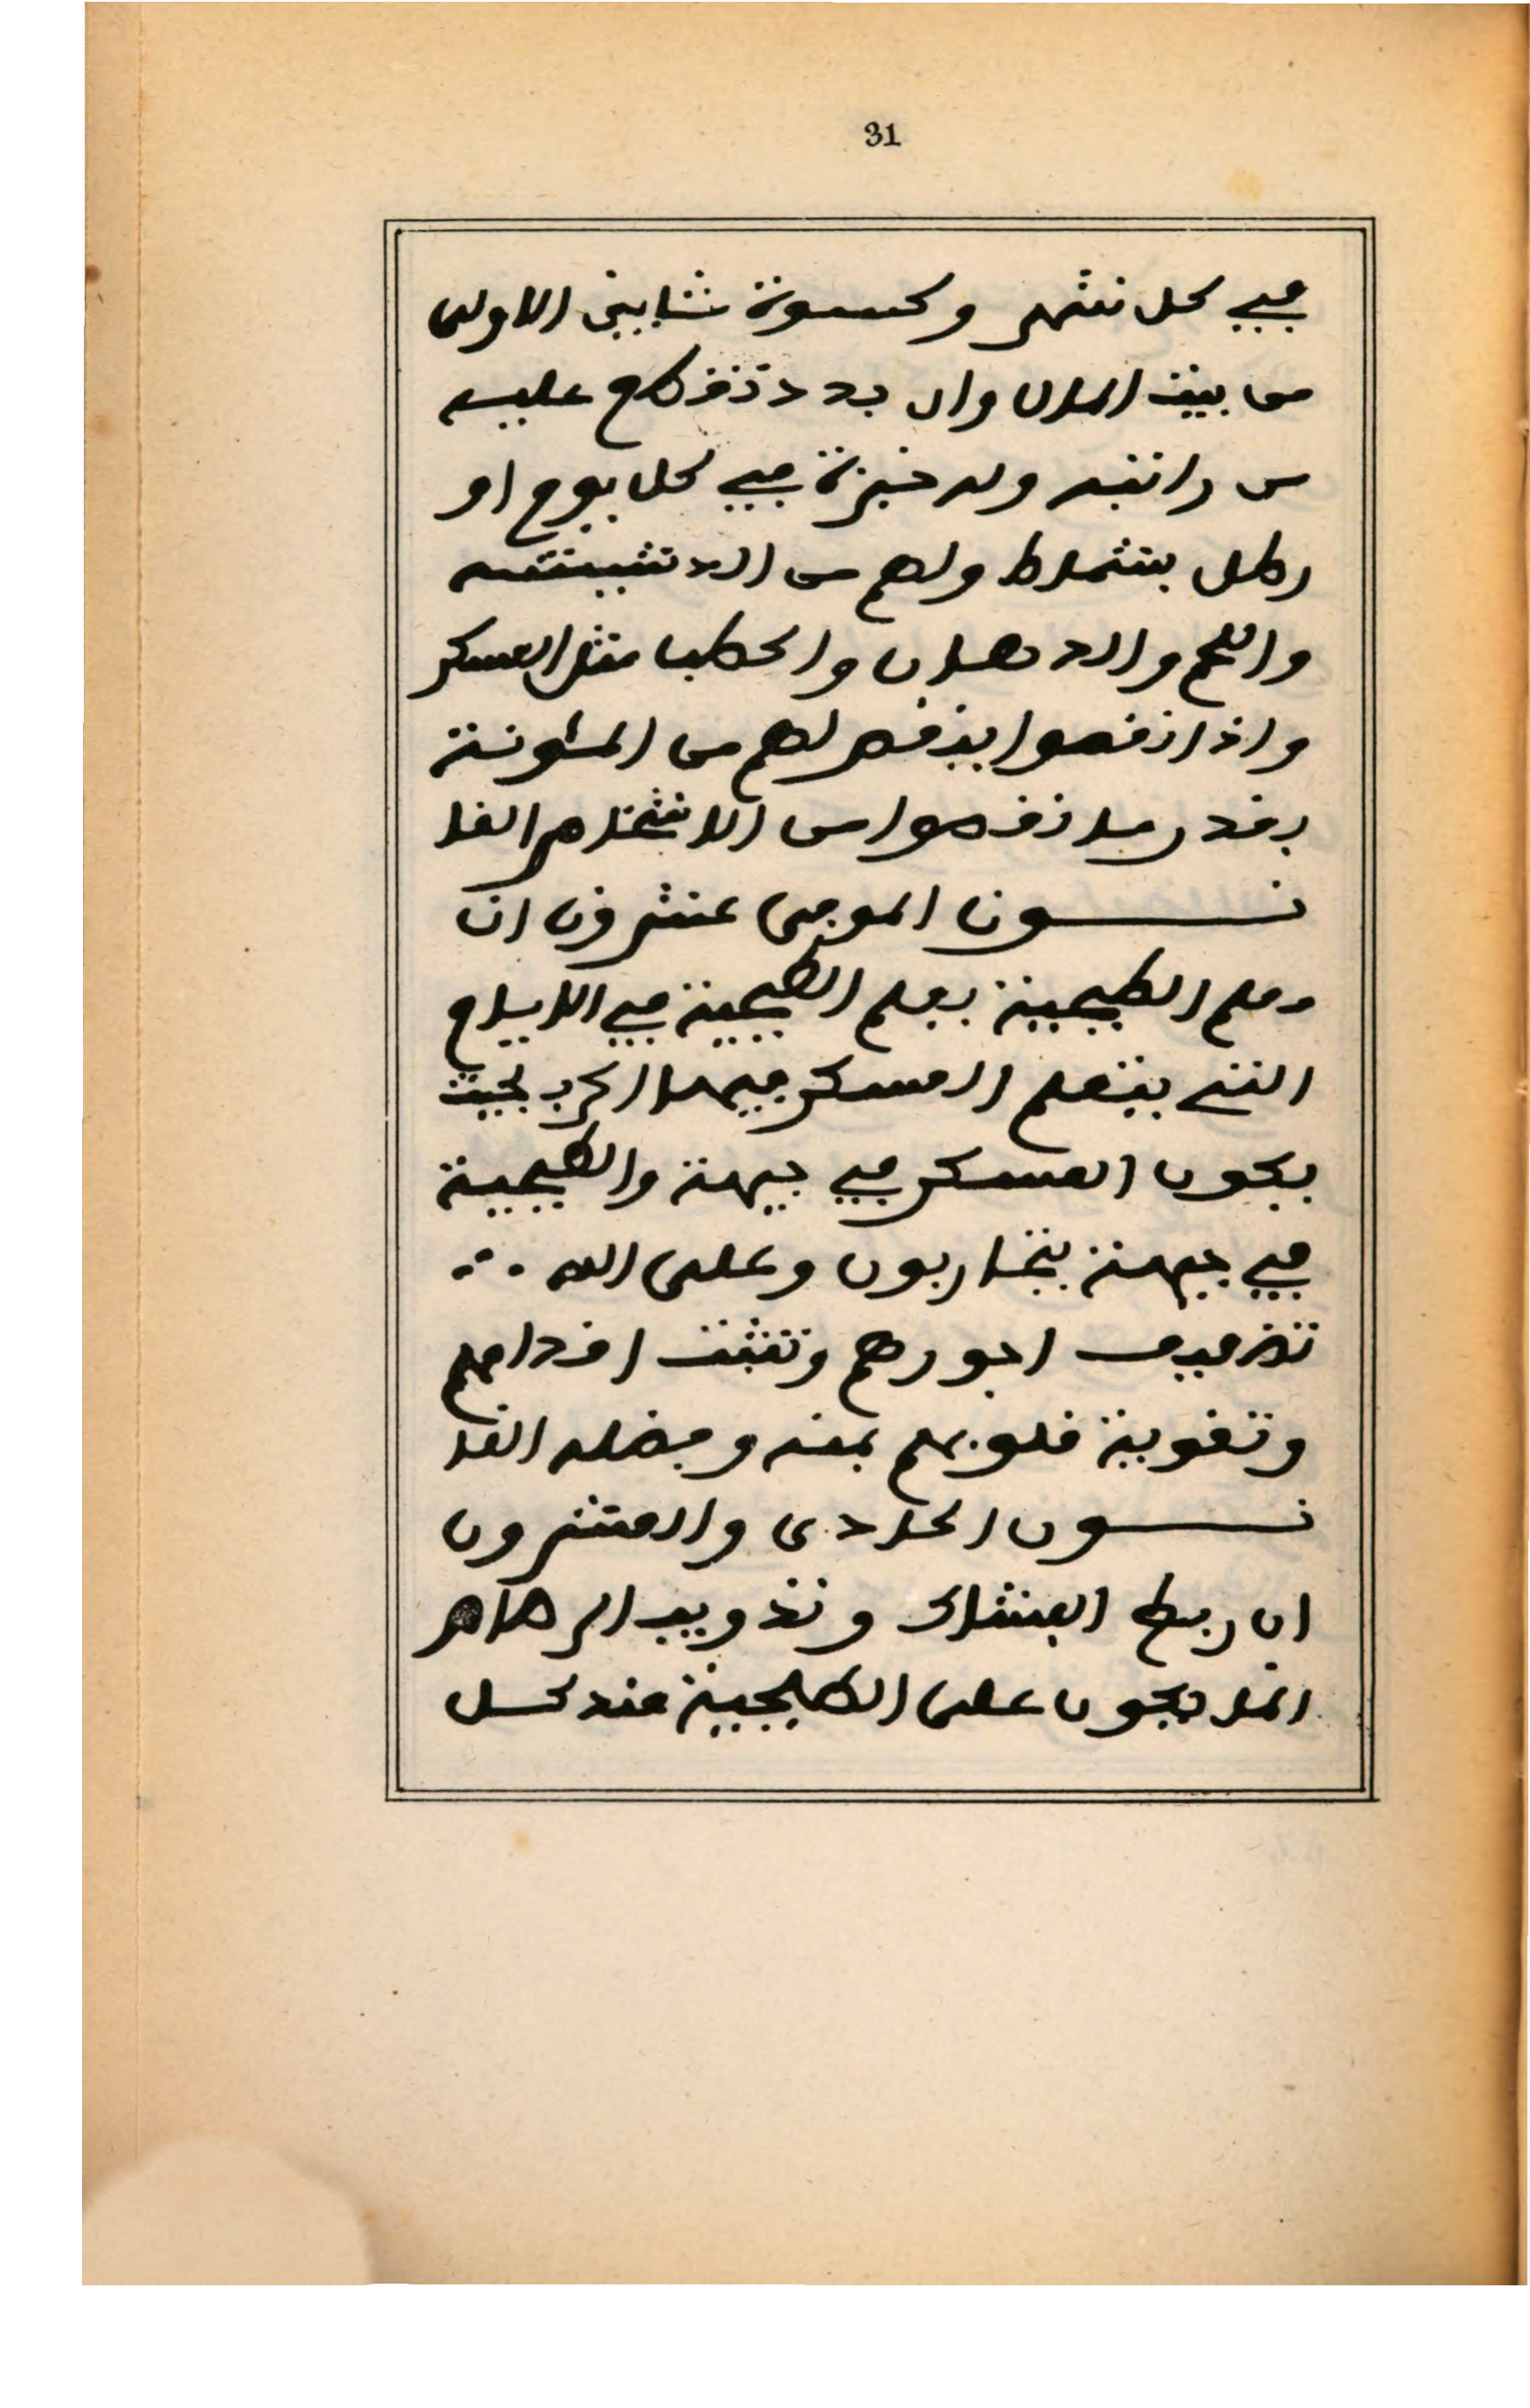 31
في كل شهر وكسوة شابين الاولى
من بيت المال وان بدد تقطع عليه
من راتبه وله خبزة في كل يوم او
رطل بشماط ولهم من الدشيشة
واللحم والادهان والحطب مثل العسكر
واذا نقصوا ينقص لهم من المئونة
بقدر ما نقصوا من الاشخاص القا
نـــون الموفى عشرون ان
معلم الطبجية يعلم الطبجية في الايام
التي يتعلم العسكر فيها الحرب بحيث
يكون العسكر في جيهة والطبجية
في جيهة يتحاربون وعلى الله ..
توفيق اجورهم وتثبت اقدامهم
وتقوية قلوبهم بمنه وفضله القا
نـــون الحادى والعشرون
ان ربط الفشاك وتذويب الرصاص
انما يكون على الطبجية عند كل